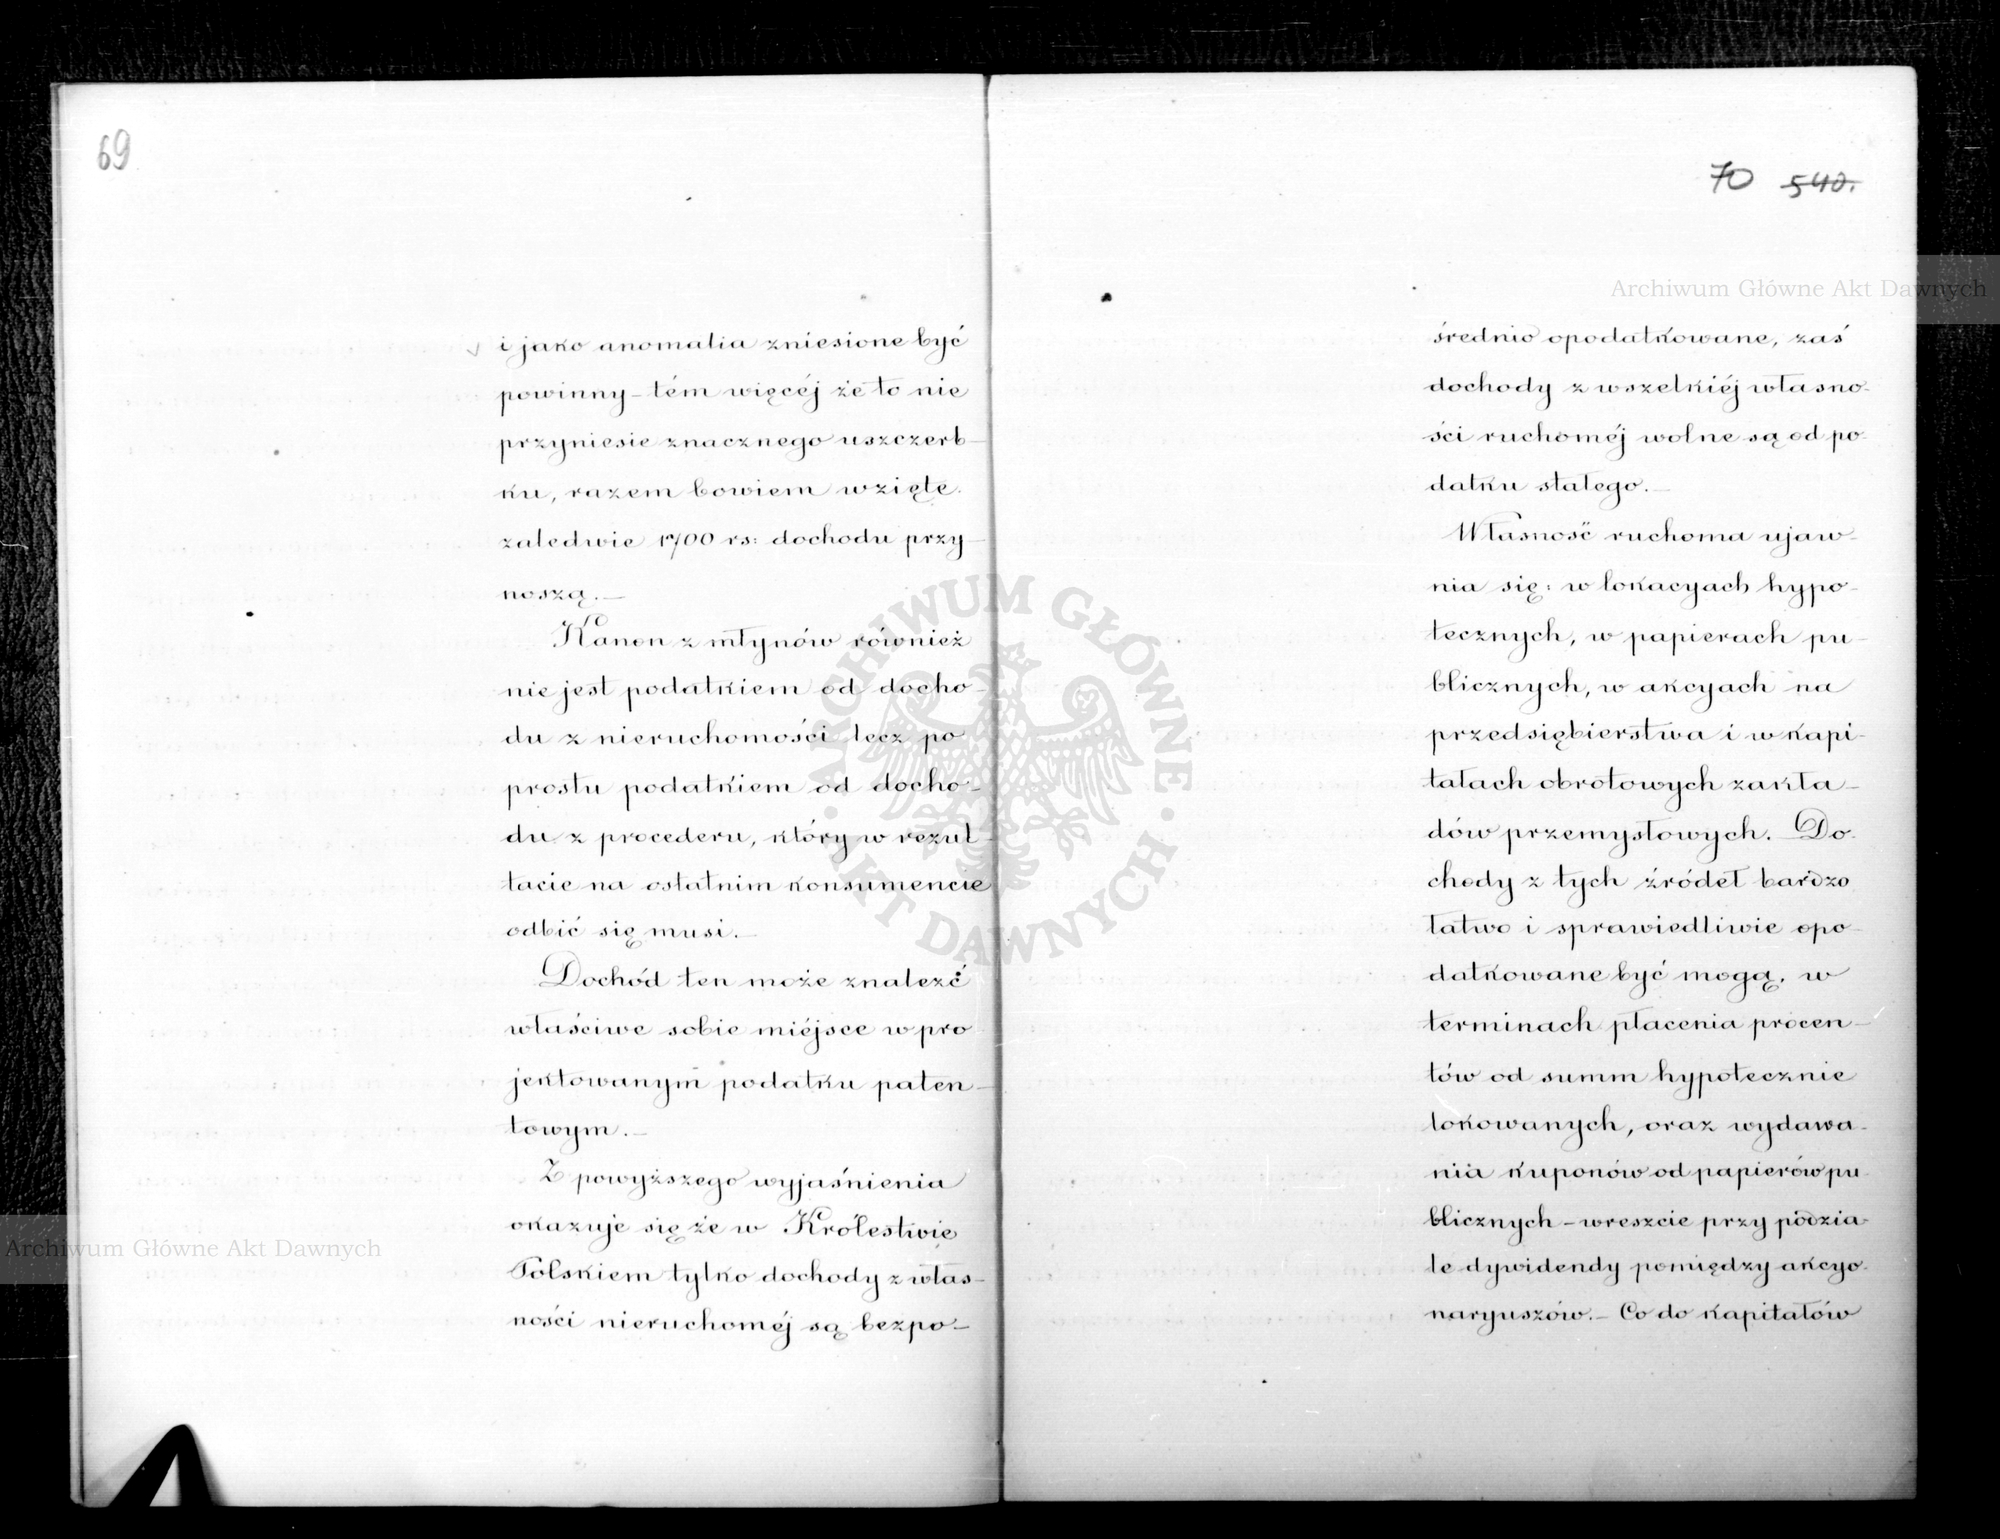 69
i jako anomalia zniesione być
powinny – tém więcéj że to nie
przyniesie znacznego uszczerb–
ku, razem bowiem wzięte
zaledwie 1700 rs: dochodu przy–
noszą. –
Kanon z młynów również
nie jest podatkiem od docho–
du z nieruchomości lecz po
prostu podatkiem od docho–
du z procederu, który w rezul–
tacie na ostatnim konsumencie
odbić się musi. –
Dochód ten może znaleźć
właściwe sobie miéjsce w pro
jektowanym podatku paten–
towym. –
Z powyższego wyjaśnienia
okazuje się że w Królestwie
Polskiem tylko dochody z włas–
ności nieruchoméj są bezpo–
70 540.
średnio opodatkowane, zaś
dochody z wszelkiéj własno–
ści ruchoméj wolne są od po–
datku stałego. –
Własność ruchoma ujaw–
nia się: w lokacyach hypo–
tecznych, w papierach pu–
blicznych, w akcyach na
przedsiębierstwa i w kapi–
tałach obrotowych zakła–
dów przemysłowych. Do–
chody z tych źródeł bardzo
łatwo i sprawiedliwie opo–
datkowane być mogą, w
terminach płacenia procen–
tów od summ hypotecznie
lokowanych, oraz wydawa–
nia kuponów od papierów pu
blicznych – wreszcie przy podzia–
le dywidendy pomiędzy akcyo–
naryuszów. – Co do kapitałów
Archiwum Główne Akt Dawnych
ARCHIWUM GŁÓWNE · AKT DAWNYCH ·
Archiwum Główne Akt Dawnych